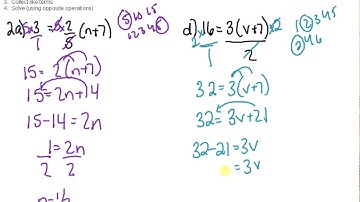 3. Collect like terms
4. Solve (using opposite operations)
2a) 5×3/1 = 5×2/5 (n+7)
⑤ 10 15
1 2 3 4 ⑤
15 = 2(n+7)
15 = 2n+14
15-14 = 2n
1/2 = 2n/2
n = 1/2
d) 2×16/1 = 3(v+7)×2/2
1 ② 3 4 5
② 4 6
32 = 3(v+7)
32 = 3v+21
32-21 = 3v
= 3v